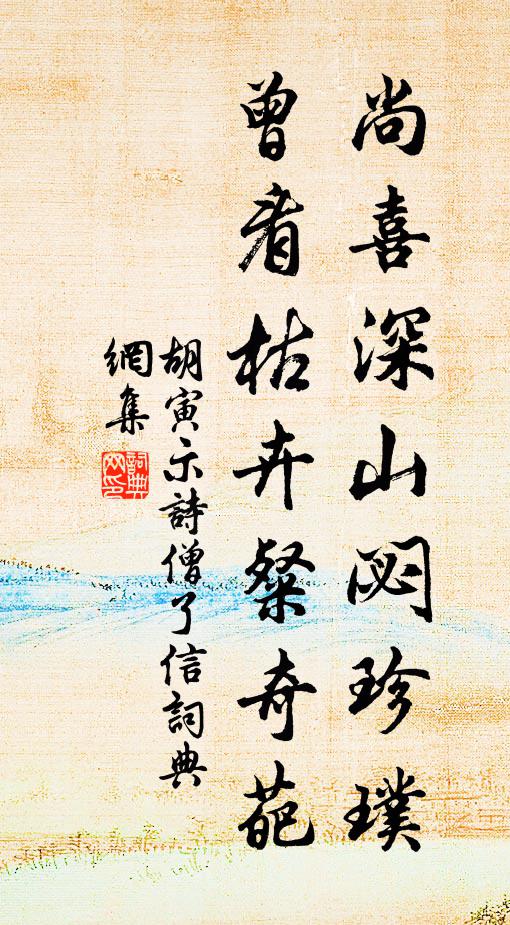 尚喜深山閟珍璞
曾看枯卉粲奇葩
胡寅示詩僧了信詞典
網集
詞典網印